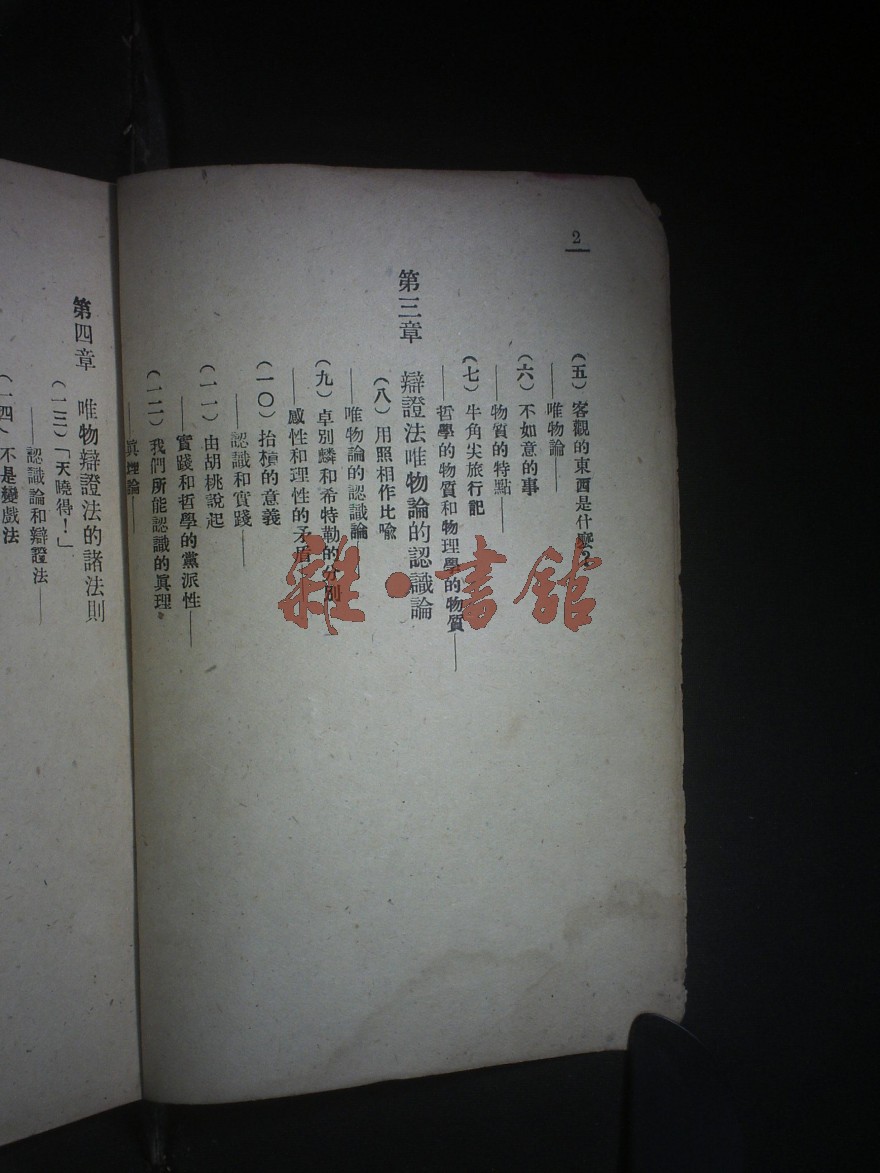 2
(五) 客觀的東西是什麼？
——唯物論——
(六) 不如意的事
——物質的特點——
(七) 牛角尖旅行記
——哲學的物質和物理學的物質——
第三章 辯證法唯物論的認識論
(八) 用照相作比喩
——唯物論的認識論——
(九) 卓別麟和希特勒的分別
——感性和理性的矛盾
(一〇) 抬槓的意義
——認識和實踐——
(一一) 由胡桃說起
——實踐和哲學的黨派性——
(一二) 我們所能認識的眞理
——眞理論——
第四章 唯物辯證法的諸法則
(一三)「天曉得！」
——認識論和辯證法——
(一四) 不是變戲法
雜·書館